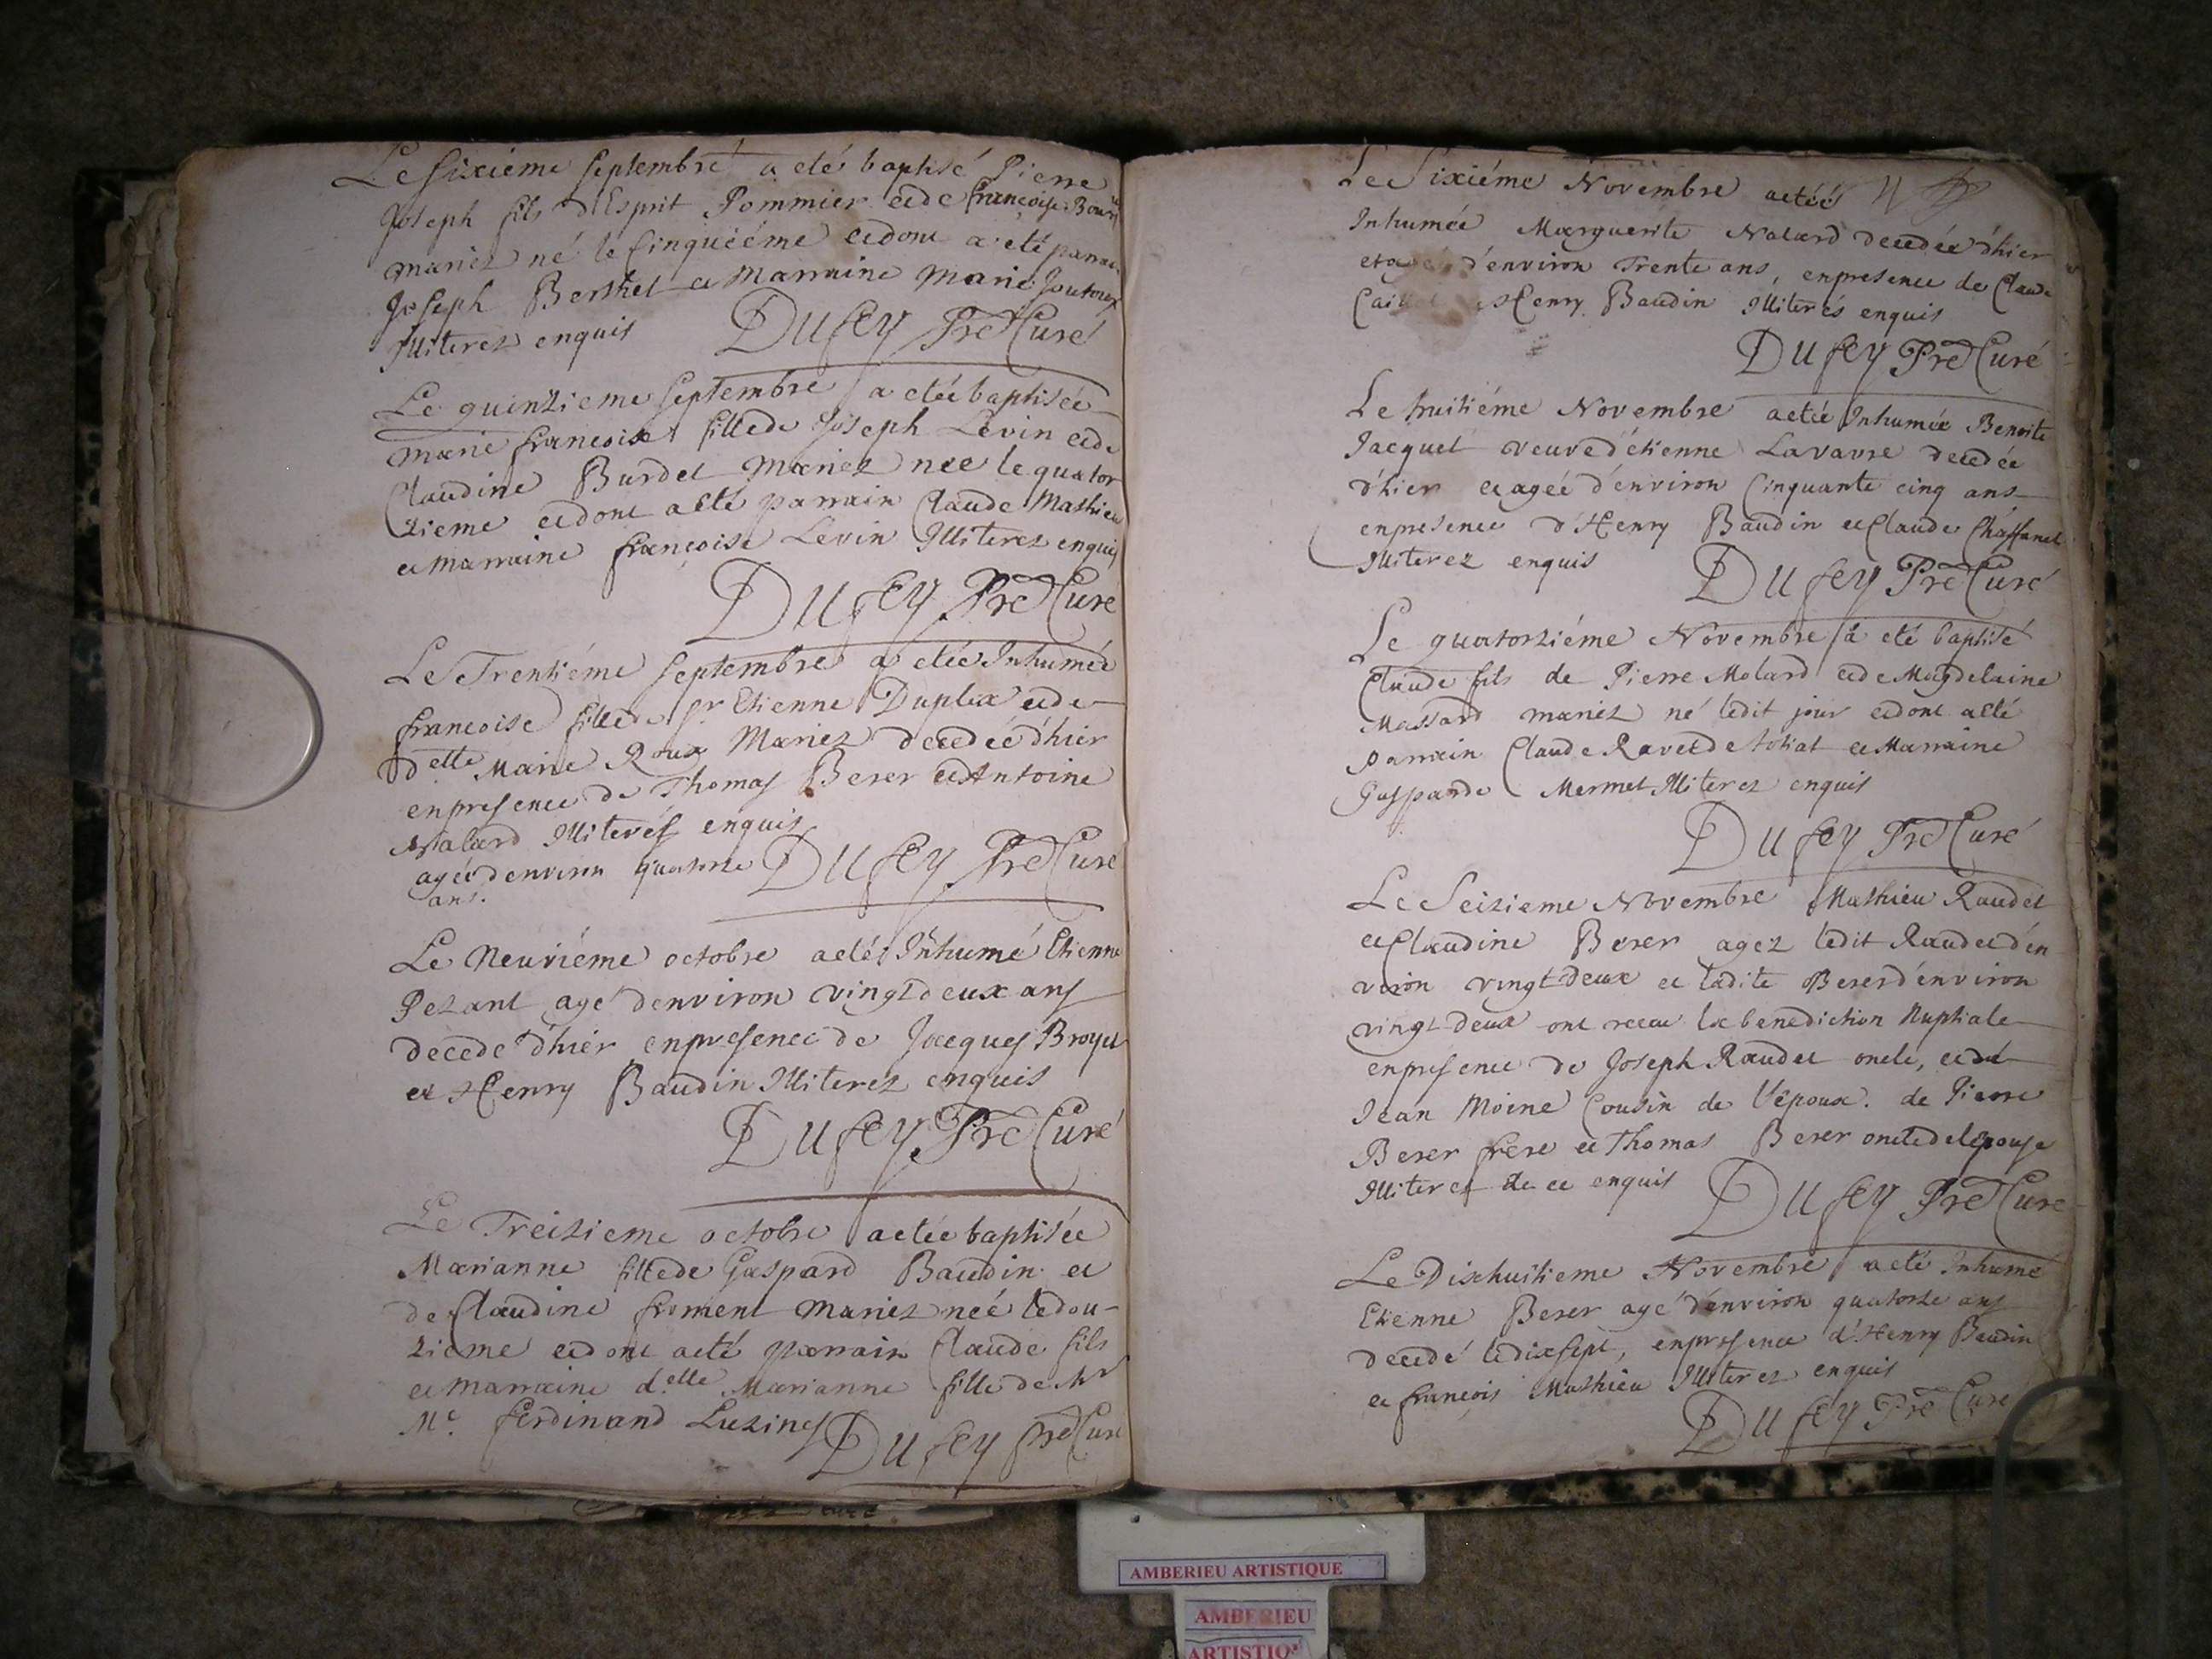 Le sixiéme septembre a eté baptisé Pierre
Joseph fils d'Esprit Pommier et de Françoise
mariez né le Cinquiéme et dont a eté parrain
Joseph Berthet et Marraine Marie
Illiterez enquis Dufey Pre Curé
Le quinzieme septembre a etée baptisée
Marie francoise fille de Joseph Levin et de
Claudine Burdet Mariez née le quator
zieme et dont a eté parrain Claude Mathieu
et Marraine françoise Levin Illiterez enquis
Dufey Pre Curé
Le Trentiéme septembre a etée Inhumée
francoise fille de sr Etienne Duplex et de
delle Marie Roux Mariez decedée d'hier
en presence de Thomas Berer et Antoine
Nalard Illiterés enquis
agée denviron quatorze Dufey Pre Curé
ans.
Le Neuviéme octobre a eté Inhumé Etienne
Pezant agé denviron vingt deux ans
decedé d'hier en presence de Jacques Broyet
et Henry Baudin Illiterez enquis
Dufey Pre Curé
Le Treizieme octobre a etée baptisée
Marianne fille de Gaspard Baudin et
de Claudine froment Mariez née le dou-
zieme et dont a eté parrain Claude fils
et marraine d.elle Marianne fille de Mr
Me. Ferdinand Luzines Dufey Pre Curé
Le Sixiéme Novembre a etée
Inhumée Marguerite Nalard decedée d'hier
d'environ Trente ans, en presence de Claude
Henry Baudin Illiterés enquis
Dufey Pre Curé
Le huitiéme Novembre a etée Inhumée Benoite
Jacquet veuve d'étienne Lavavre decedée
d'hier et ageé d'environ Cinquante cinq ans
en presence d'Henry Baudin et Claude Chaffanel
Illiterez enquis Dufey Pre Curé
Le quatorziéme Novembre a eté baptisé
Claude fils de Pierre Molard et de Magdelaine
Massard mariez né ledit jour et dont a eté
parrain Claude Ravet de et Marraine
Gasparde Mermet Illiterez enquis
Dufey Pre Curé
Le Seizieme Novembre Mathieu Raudet
et Claudine Berer agez ledit Raudet d'en
viron vingt deux et ladite Berer d'environ
vingt deux ont receu la benediction Nuptiale
en presence de Joseph Raudet oncle, et de
Jean Moine Cousin de l'époux. de Pierre
Berer frere et Thomas Berer oncle de l'épouse
Illiterez de ce enquis Dufey Pre Curé
Le Dixhuitieme Novembre a eté Inhumé
Etienne Berer agé d'environ quatorze ans
decedé le dixsept, en presence d'Henry Baudin
et françois Mathieu Illiterez enquis
Dufey Pre Curé
AMBERIEU ARTISTIQUE
AMBERIEU